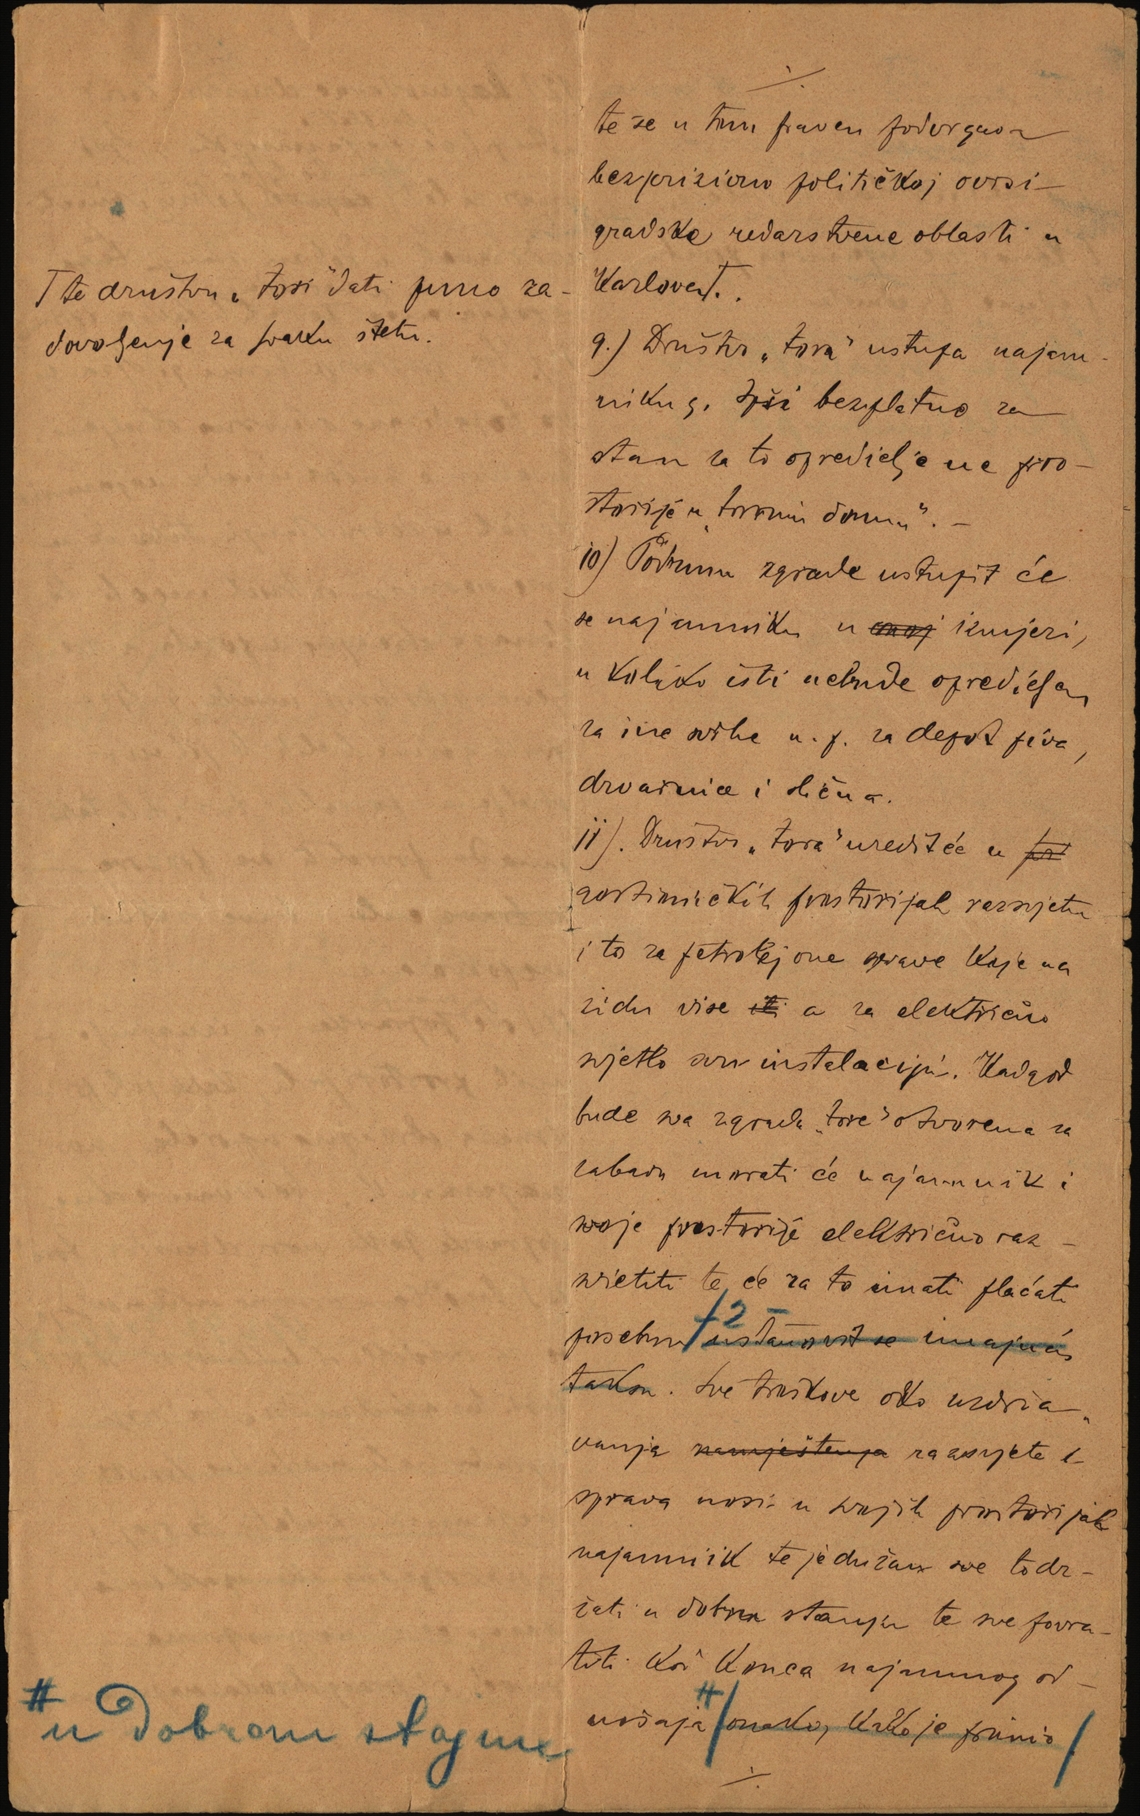 te se u tom pravcu podvrgava
bezprizivno političkoj ovrsi
gradske redarstvene oblasti u
Karlovcu.
T te društvu „Zori“ dati puno za-
dovoljenje za svaku štetu.
9.) Društvo „Zora“ ustupa najam-
niku g. bezplatno za
stan za to opredieljene pro-
storije u „Zorinu domu“. —
10) Podrum zgrade ustupit će
se najamniku u onoj izmjeri,
u koliko isti nebude opredieljen
za ine svrhe n. p. za depot piva,
drvarnice i slična.
11). Društvo „Zora“ uredit će u
gostioničkih prostorijah razsvjetu
i to za petrolej one sprave koje na
zidu vise iti a za električno
svjetlo svu instalaciju. Kadgod
bude sva zgrada „Zore“ otvorena za
zabavu morati će najamnik i
svoje prostorije električno raz-
svietliti te će za to imati plaćati
posebnu /2 – ustanovit se imajuću
taksu. Sve troškove oko uzdrža-
vanja namještenja razsvjete i
sprava nosi u svojih prostorijah
najamnik te je dužan sve to dr-
žati u dobrom stanju te sve povra-
titi kod konca najmovnog od-
nošaja # /onako, kako je primio/
# u dobrom stanju